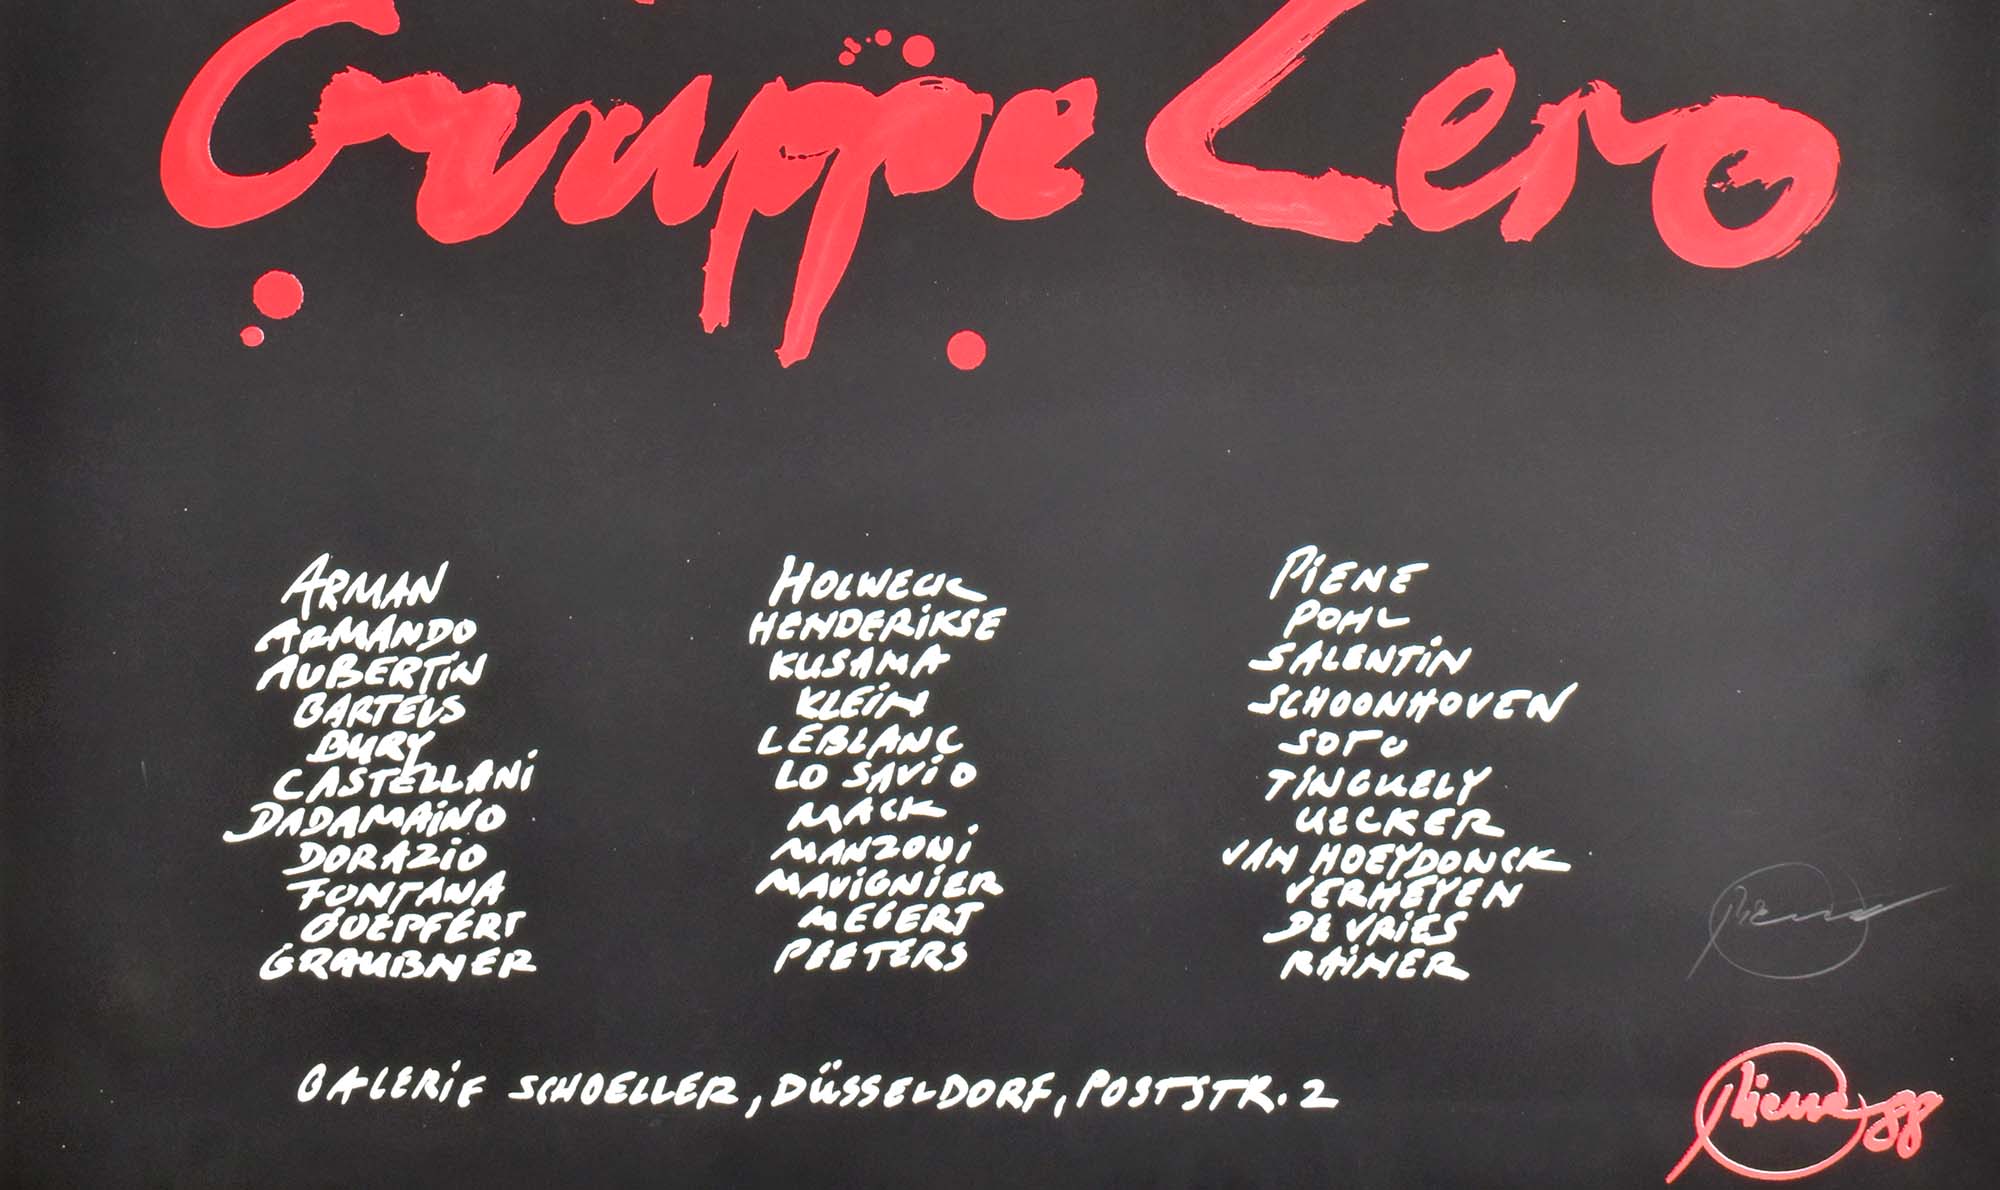 Gruppe Zero
ARMAN
ARMANDO
AUBERTiN
BARTELS
BURY
CASTELLANi
DADAMAiNO
DORAZiO
FONTANA
GOEPFERT
GRAUBNER
HOLWECK
HENDERiKSE
KUSAMA
KLEiN
LEBLANC
LO SAViO
MACK
MANZONi
MAViGNiER
MEGERT
PEETERS
PiENE
POHL
SALENTiN
SCHOONHOVEN
SOTO
TiNGUELY
UECKER
VAN HOEYDONCK
VERHEYEN
DE VRiES
RAiNER
GALERiE SCHOELLER, DÜSSELDORF, POSTSTR. 2
Piene
Piene 88